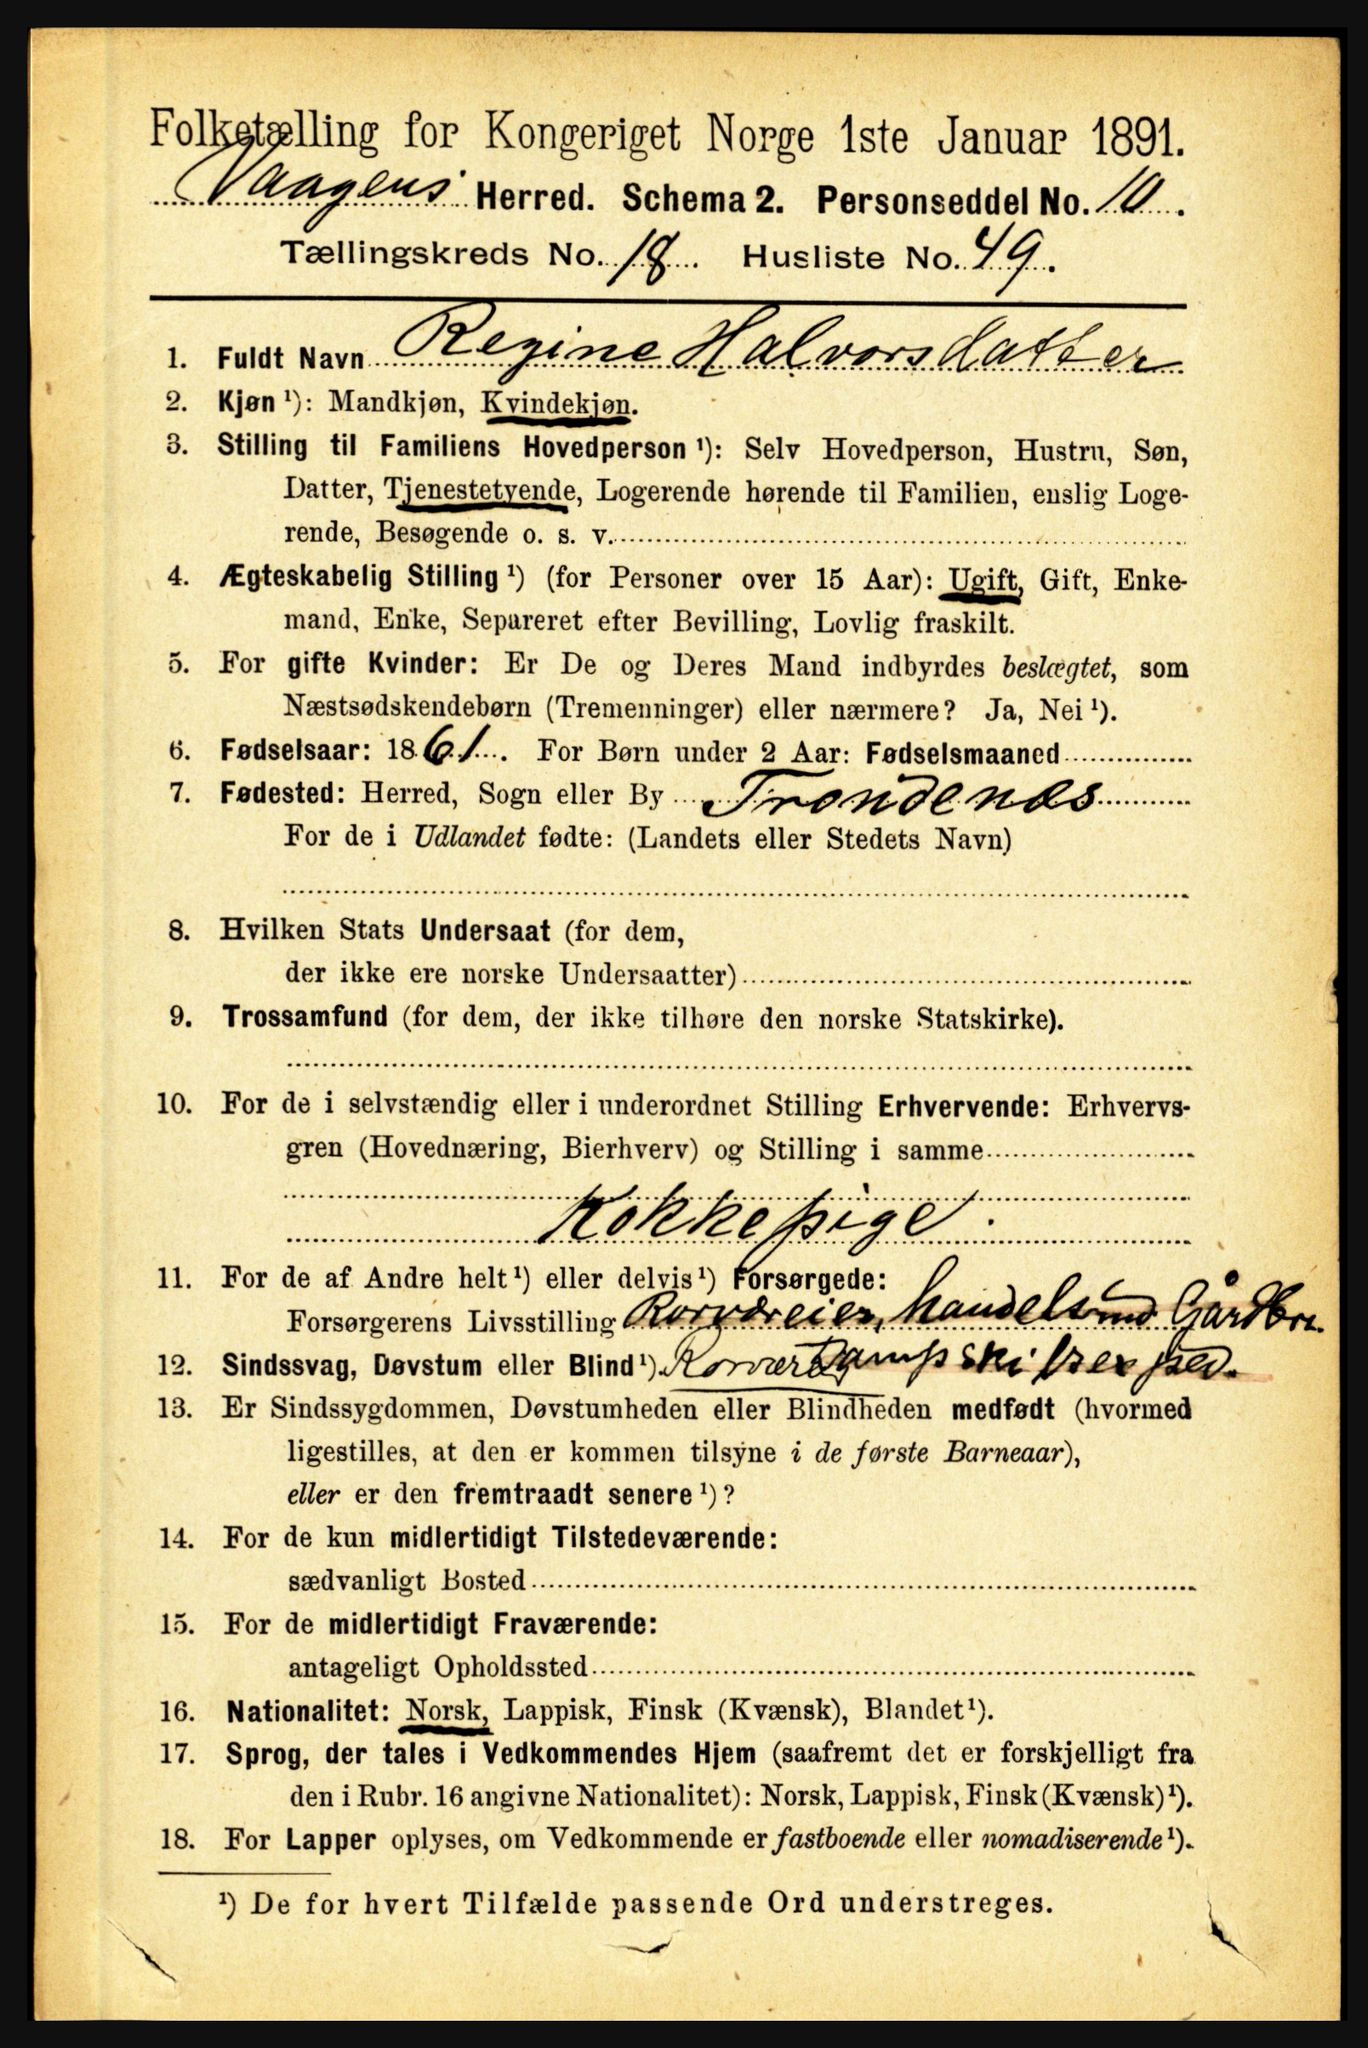 Folketælling for Kongeriget Norge 1ste Januar 1891.
Vaagens Herred. Schema 2. Personseddel No. 10.
Tællingskreds No. 18. Husliste No. 49.
1. Fuldt Navn Regine Halvorsdatter
2. Kjøn ¹): Mandkjøn, Kvindekjøn.
3. Stilling til Familiens Hovedperson ¹): Selv Hovedperson, Hustru, Søn,
Datter, Tjenestetyende, Logerende hørende til Familien, enslig Loge-
rende, Besøgende o. s. v.
4. Ægteskabelig Stilling ¹) (for Personer over 15 Aar): Ugift, Gift, Enke-
mand, Enke, Separeret efter Bevilling, Lovlig fraskilt.
5. For gifte Kvinder: Er De og Deres Mand indbyrdes beslægtet, som
Næstsødskendebørn (Tremenninger) eller nærmere? Ja, Nei ¹).
6. Fødselsaar: 1861. For Børn under 2 Aar: Fødselsmaaned
7. Fødested: Herred, Sogn eller By Trondenæs
For de i Udlandet fødte: (Landets eller Stedets Navn)
8. Hvilken Stats Undersaat (for dem,
der ikke ere norske Undersaatter)
9. Trossamfund (for dem, der ikke tilhøre den norske Statskirke).
10. For de i selvstændig eller i underordnet Stilling Erhvervende: Erhvervs-
gren (Hovednæring, Bierhverv) og Stilling i samme
Kokkepige.
11. For de af Andre helt ¹) eller delvis ¹) Forsørgede:
Forsørgerens Livsstilling Rorværeier, handelsmd Gårdbr.
12. Sindssvag, Døvstum eller Blind ¹). Dampskibsexped.
13. Er Sindssygdommen, Døvstumheden eller Blindheden medfødt (hvormed
ligestilles, at den er kommen tilsyne i de første Barneaar),
eller er den fremtraadt senere ¹)?
14. For de kun midlertidigt Tilstedeværende:
sædvanligt Bosted
15. For de midlertidigt Fraværende:
antageligt Opholdssted
16. Nationalitet: Norsk, Lappisk, Finsk (Kvænsk), Blandet ¹).
17. Sprog, der tales i Vedkommendes Hjem (saafremt det er forskjelligt fra
den i Rubr. 16 angivne Nationalitet): Norsk, Lappisk, Finsk (Kvænsk) ¹).
18. For Lapper oplyses, om Vedkommende er fastboende eller nomadiserende ¹).
¹) De for hvert Tilfælde passende Ord understreges.